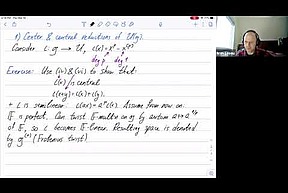 1) Center & central reductions of U(g).
Consider ι: g → U, ι(x) = x^p − x^[p]
deg p deg 1
Exercise: Use (iv) & (vii) to show that:
ι(x) is central
ι(x+y) = ι(x) + ι(y).
+ ι is semilinear: ι(ax) = a^p ι(x). Assume from now on:
F is perfect. Can twist F-multn on g by autom a ↦ a^{1/p}
of F, so ι becomes F-linear. Resulting space is denoted
by g^(1) (Frobenius twist)